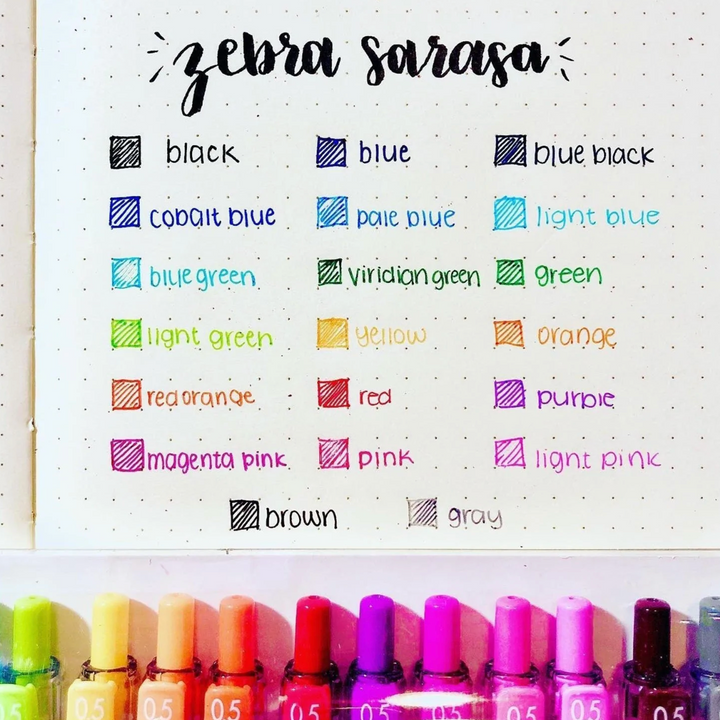 zebra sarasa
black blue blue black
cobalt blue pale blue light blue
blue green viridian green green
light green yellow orange
red orange red purple
magenta pink pink light pink
brown gray
0.5 0.5 0.5 0.5 0.5 0.5 0.5 0.5 0.5